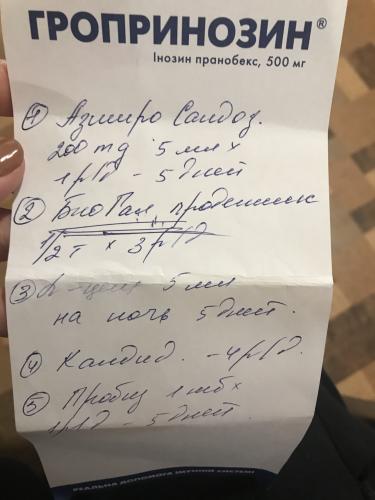 ГРОПРИНОЗИН®
Інозин пранобекс, 500 мг
① Азимро Сандоз.
200 mg 5 мл х
1 р/д - 5 дней
② БиоГая продентис
1/2 т х 3 р/д
③ 5 мл
на ночь 5 дней.
④ Кандид. - 4 р/д.
⑤ 1 таб х
1 р/д - 5 дней.
РЕАЛЬНА ДОПОМОГА ІМУННІЙ СИСТЕМІ